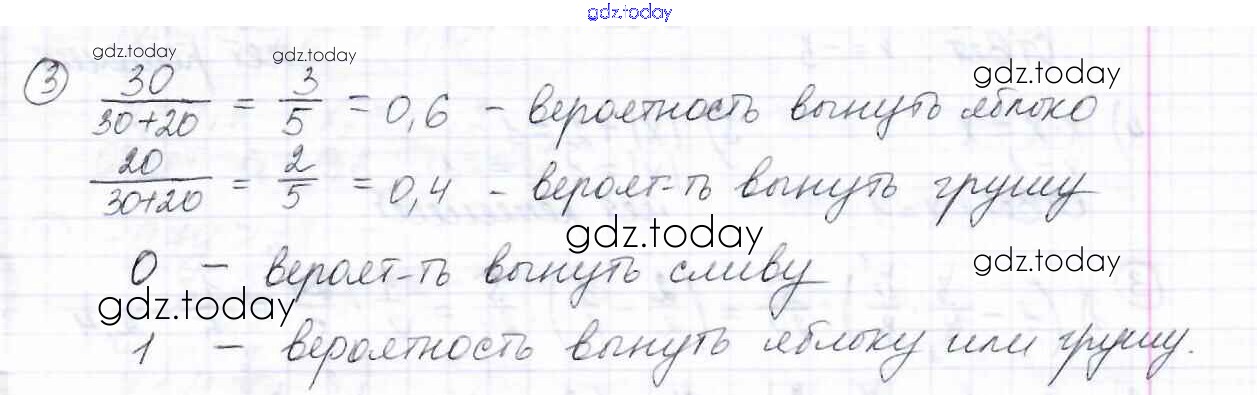 gdz.today
gdz.today gdz.today
③ 30/(30+20) = 3/5 = 0,6 – вероятность вынуть яблоко
gdz.today
20/(30+20) = 2/5 = 0,4 – вероят-ть вынуть грушу
gdz.today
0 – вероят-ть вынуть сливу
gdz.today
gdz.today
1 – вероятность вынуть яблоку или грушу.